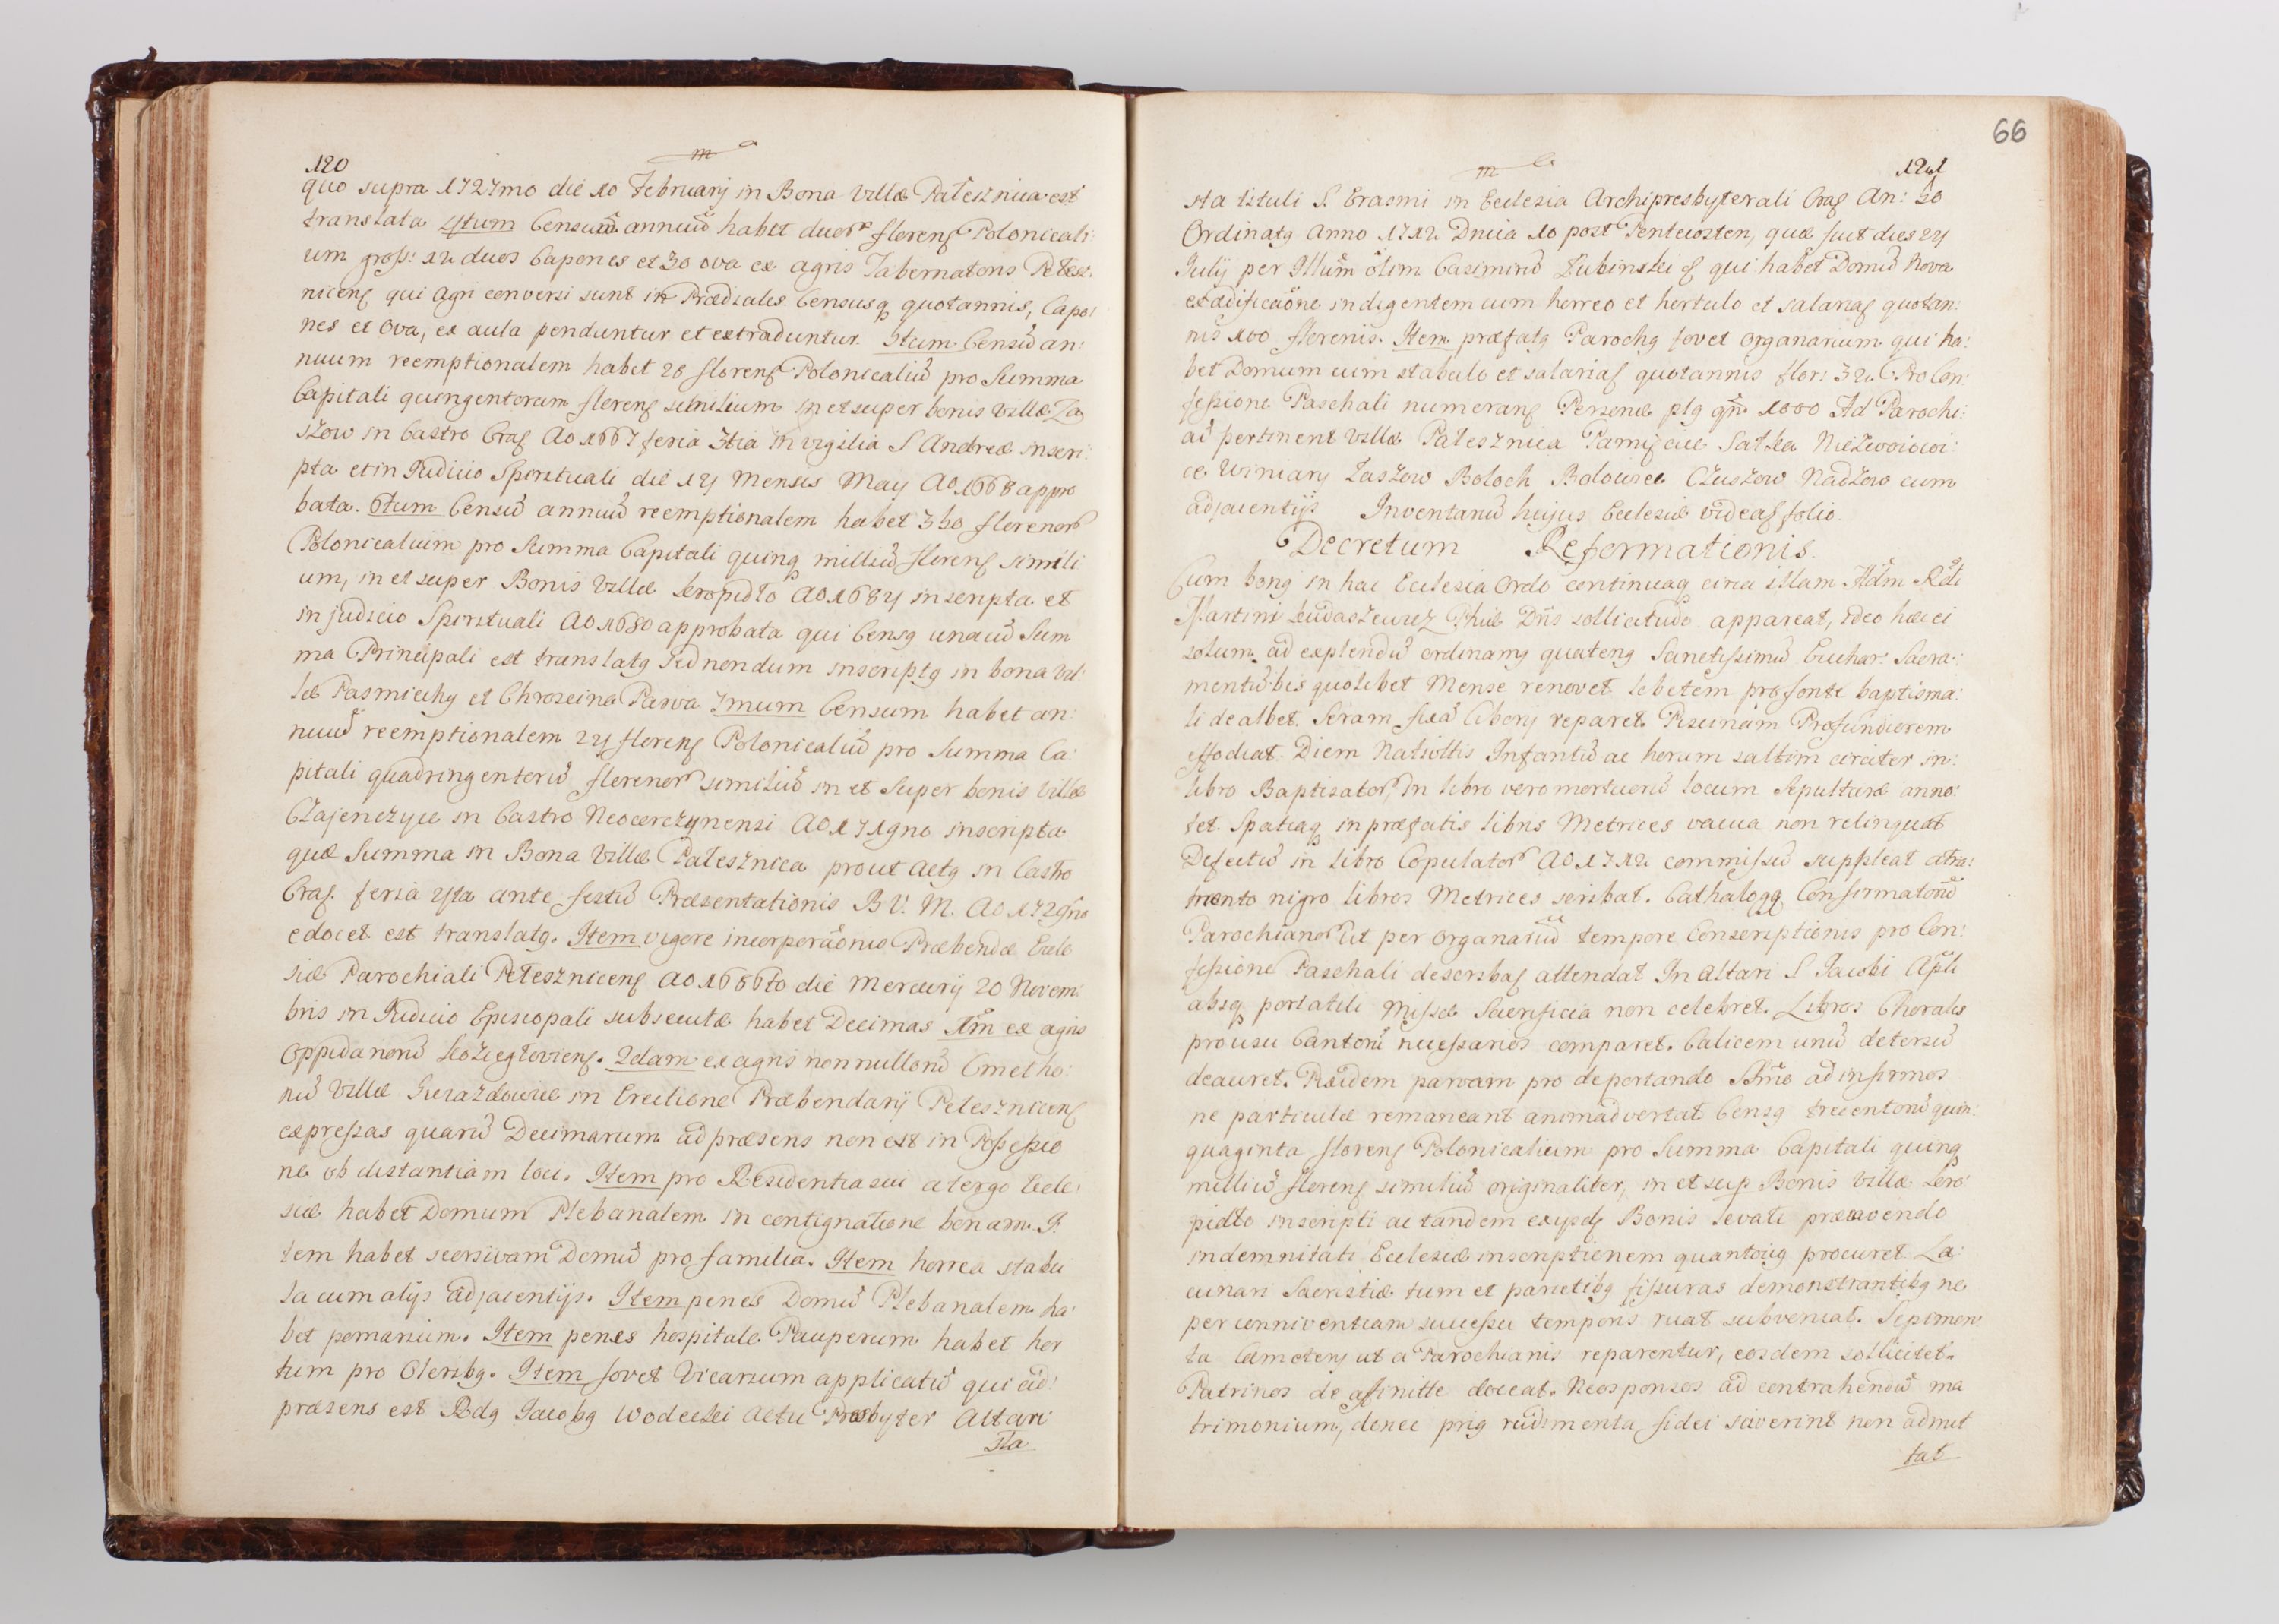 120
quo supra 1727mo die 10 Februarij in Bona Villæ Pałesznica est
translata 4tum Censum annuũ habet duor florenꝭ Polonicali
um gross: 12 duos Capones et 30 ova ex agris Tabernatoris Pełesz:
nicenꝭ qui Agri conversi sunt in Prædiales Censusq quotannis, Capo:
nes et Ova, ex aula penduntur et extraduntur. 5tum Censũ an:
nuum reemptionalem habet 28 florenꝭ Polonicaliũ pro Summa
Capitali quingentorum florenꝭ similium in et super bonis villæ Za
szow in Castro Craꝭ A0 1667 feria 3tia in vigilia S Andreæ inscri:
pta et in Judicio Spirituali die 14 Mensis May A0 1668 appro
bata. 6tum Censũ annuũ reemptionalem habet 350 florenor
Polonicalium pro Summa Capitali quinq milliũ florenꝭ simili
um, in et super Bonis Villæ Seropidło A0 1684 inscripta et
in judicio Spirituali A0 1680 approbata qui Censꝯ unacũ Sum
ma Principali est translatꝯ Sed nondum inscriptꝯ in bona Vil:
læ Pasmiechy et Chroscina Parva 7mum Censum habet an:
nuũ reemptionalem 24 florenꝭ Polonicaliũ pro Summa Ca:
pitali quadringentorũ florenor similiũ in et Super bonis Villæ
Czajenczyce in Castro Neocorczynensi A0 1719no inscripta
quæ Summa in Bona Villæ Pałesznica prout Actꝯ in Castro
Craꝭ. feria 4ta ante festũ Præsentationis B V. M. A0 1729no
edocet est translatꝯ. Item vigore incorporãonis Præbendæ Eccle
siæ Parochiali Pełesznicenꝭ A0 1666to die Mercurij 20 Novem:
bris in Judicio Episcopali subsecutæ habet Decimas 1m ex agris
Oppidanorũ Kozieglovienꝭ. 2dam ex agris nonnullorũ Cmetho:
nũ Villæ Gierazdowice in Erectione Præbendarij Pelesznicenꝭ
expressas quarũ Decimarum ad præsens non est in Possessio
ne ob distantiam loci. Item pro Residentia sui a tergo Eccle:
siæ habet Domum Plebanalem in contignatione bonam. I:
tem habet seorsivam Domũ pro familia. Item horrea stabu
la cum alijs adjacentijs. Item penes Domũ Plebanalem ha:
bet pomarium. Item penes hospitale Pauperum habet hor
tum pro Oleribꝯ. Item fovet Vicarium applicatũ qui ad:
præsens est Rdꝯ Jacobꝯ Wodecki Actu Præsbyter Altari
sta
66
121
sta tituli S. Erasmi in Ecclesia Archipresbyterali Craꝭ An: 50
Ordinatꝯ Anno 1712 Dnica 10 post Pentecosten, quæ fuit dies 24
Julij per Illum olim Casimirũ Łubinski ꝭ qui habet Domũ Nova
exædificaõne indigentem cum horreo et hortulo et salariaꝭ quotan:
nis 100 florenis. Item præfatꝯ Parochꝯ fovet Organarium qui ha:
bet Domum cum stabulo et salariaꝭ quotannis flor: 32. Pro Con:
fessione Paschali numeranꝭ Personæ plꝯ qm 1000 Ad Parochi:
ã pertinent Villæ Pałesznica Pamięcice Sałka Nieżwoiowi:
ce Winiary Zaszow Boloch Bolowiec Czuszow Nadzow cum
adjacentijs Inventariũ hujus Ecclesiæ videaꝭ folio
Decretum Reformationis.
Cum bonꝯ in hac Ecclesia Ordo continuaq circa illam Adm Rdi
Martini Ludaszewicz Phiæ Dris sollicitudo appareat, ideo hæc ei
solum ad explendũ ordinamꝯ quatenꝯ Sanctissimũ Euchar: Sacra:
mentũ bis quolibet Mense renovet lebetem pro fonte baptisma:
li dealbet. Seram fixã Ciborij reparet. Piscinam Profundiorem
effodiat. Diem Nativitis Infantiũ ac horam saltim circiter in:
libro Baptizator, in libro vero mortuorũ locum Sepulturæ anno:
tet. Spatiaq in præfatis libris Metrices vacua non relinquat
Defectũ in libro Copulator A0 1712 commissũ suppleat atra:
mento nigro libros Metrices scribat. Cathalogꝯq Confirmatorũ
Parochianor Ut per Organariũ tempore Conscriptionis pro Con:
fessione Paschali describaꝭ attendat In altari S Jacobi Apli
absq portatili Missæ Sacrificia non celebret. Libros Chorales
pro usu Cantorũ necessarios comparet. Calicem unũ detersũ
deauret. Pixidem parvam pro deportando SSmo ad infirmos
ne particulæ remaneant animadvertat Censꝯ trecentorũ quin:
quaginta florenꝭ Polonicalium pro Summa Capitali quinq
milliũ florenꝭ similiũ originaliter, in et sup Bonis Villæ Sero:
pidło inscripti ac tandem ex ijsdꝭ Bonis levati præcavendo
indemnitati Ecclesiæ inscriptionem quantociꝯ procuret. La:
cunari Sacristiæ tum et parietibꝯ fissuras demonstrantibꝯ ne
per conniventiam successu temporis ruat subveniat. Sepimen
ta Cæmeterij ut a Parochianis reparentur, eosdem sollicitet.
Patrinos de affinitte doceat. Neosponsos ad contrahendũ ma
trimonium, donec priꝯ rudimenta fidei sciverint non admit
tat